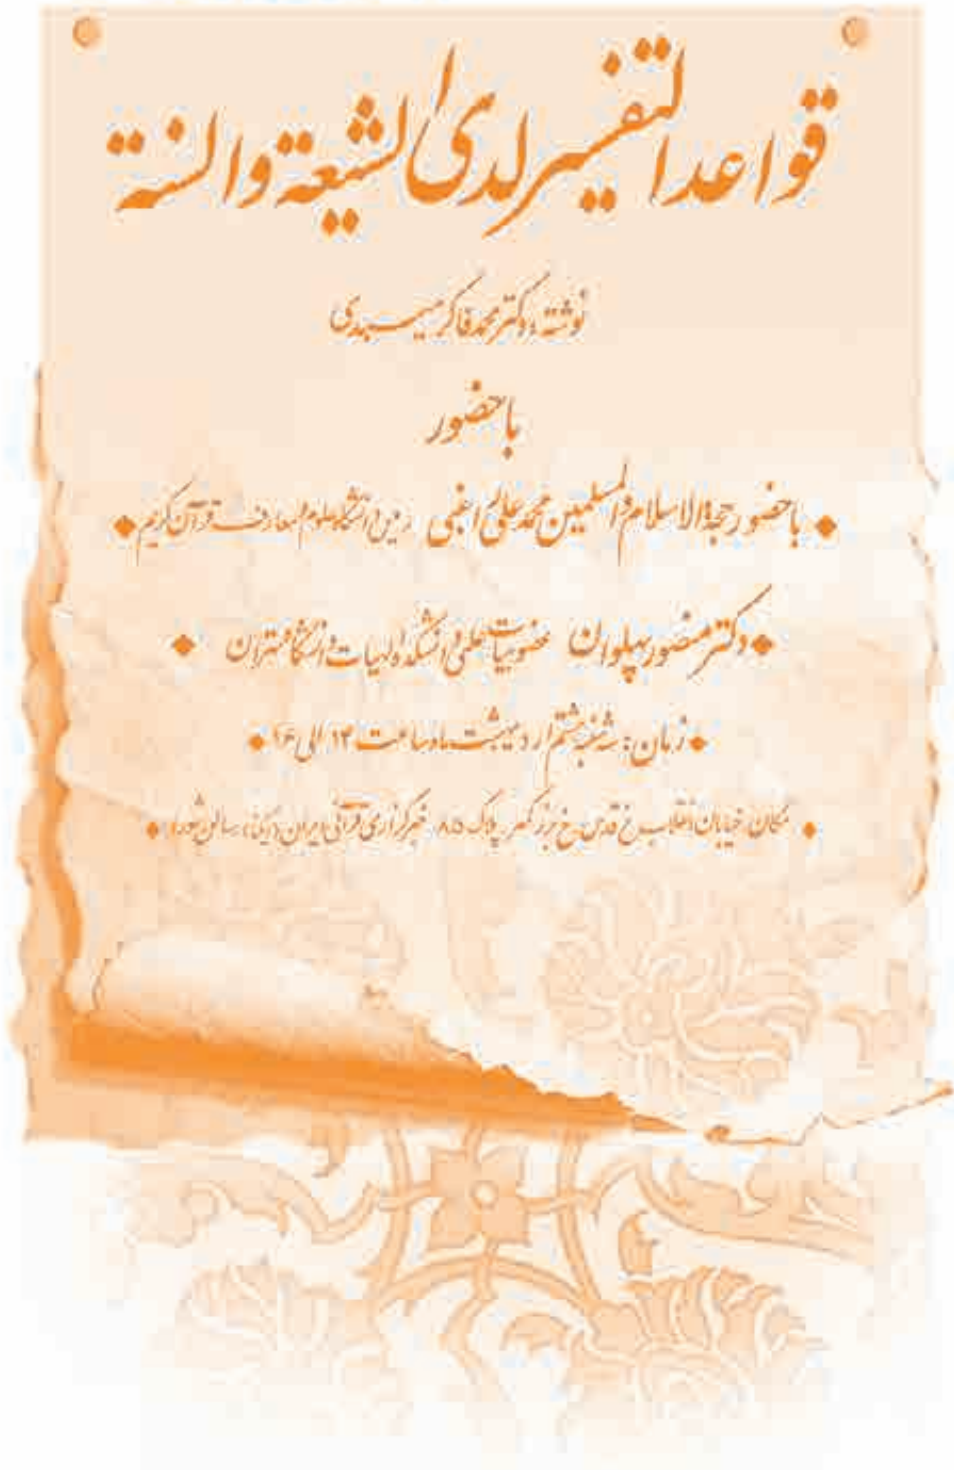 قواعد التفسیر لدی الشیعة والسنة
نوشته: دکتر محمد فاکر میبدی
با حضور
با حضور حجة الاسلام والمسلمین محمد علی راغبی رییس دانشگاه علوم و معارف قرآن کریم
دکتر منصور پهلوان عضو هیات علمی دانشکده الهیات دانشگاه تهران
زمان: سه شنبه هشتم اردیبهشت ماه ساعت ۱۴ الی ۱۶
مکان: خیابان انقلاب خ قدس خ بزرگمهر پلاک ۸۵ خبرگزاری قرآنی ایران (ایکنا) سالن شورا